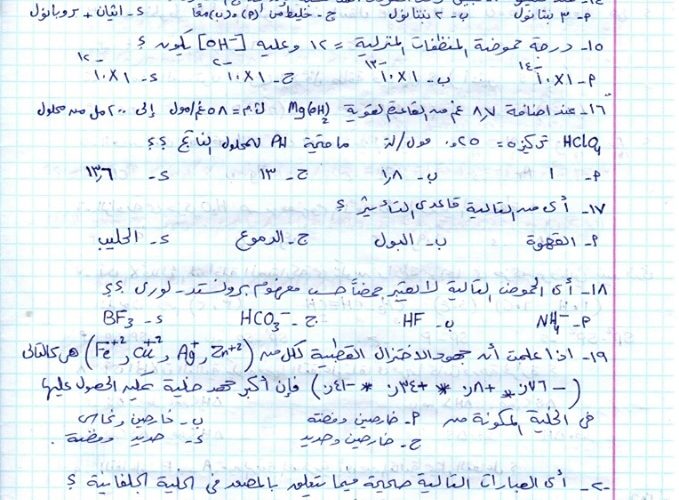 أ- ٣ بنتانول ب- ٢ بنتانول ج- خليط من (أ) و (ب) معًا د- ايثان + بروبانول
١٥- درجة حموضة المنظفات المنزلية = ١٢ وعليه [OH⁻] يكون ؟
أ- ١×١٠⁻¹⁴ ب- ١×١٠⁻¹³ ج- ١×١٠⁻² د- ١×١٠⁻¹²
١٦- عند اضافة ٨,٧ غم من القاعدة القوية Mg(OH)₂ = ٥٨غم/مول إلى ٢٠٠ مل من محلول
HClO₄ تركيزه = ٠,٢٥ مول/لتر ما قيمة PH للمحلول الناتج ؟؟
أ- ١ ب- ١,٨ ج- ١٣ د- ١٣,٦
١٧- أي من التالية قاعدي التأثير ؟
أ- القهوة ب- البول ج- الدموع د- الحليب
١٨- أي الحموض التالية لا يعتبر حمضاً حسب مفهوم برونستد - لوري ؟؟
أ- NH₄⁻ ب- HF ج- HCO₃⁻ د- BF₃
١٩- اذا علمت أن جهود الاختزال القطبية لكل من (Zn⁺², Ag⁺, Cu⁺², Fe⁺²) هي كالتالي
(-٠,٧٦ * +٠,٨ * +٠,٣٤ * -٠,٤١) فإن أكبر جهد خلية يمكن الحصول عليها
في الخلية المكونة من أ- خارصين وفضة ب- خارصين ونحاس
ج- خارصين وحديد د- حديد وفضة .
٢٠- أي العبارات التالية صحيحة فيما يتعلق بالمصعد في الخلية الجلفانية ؟